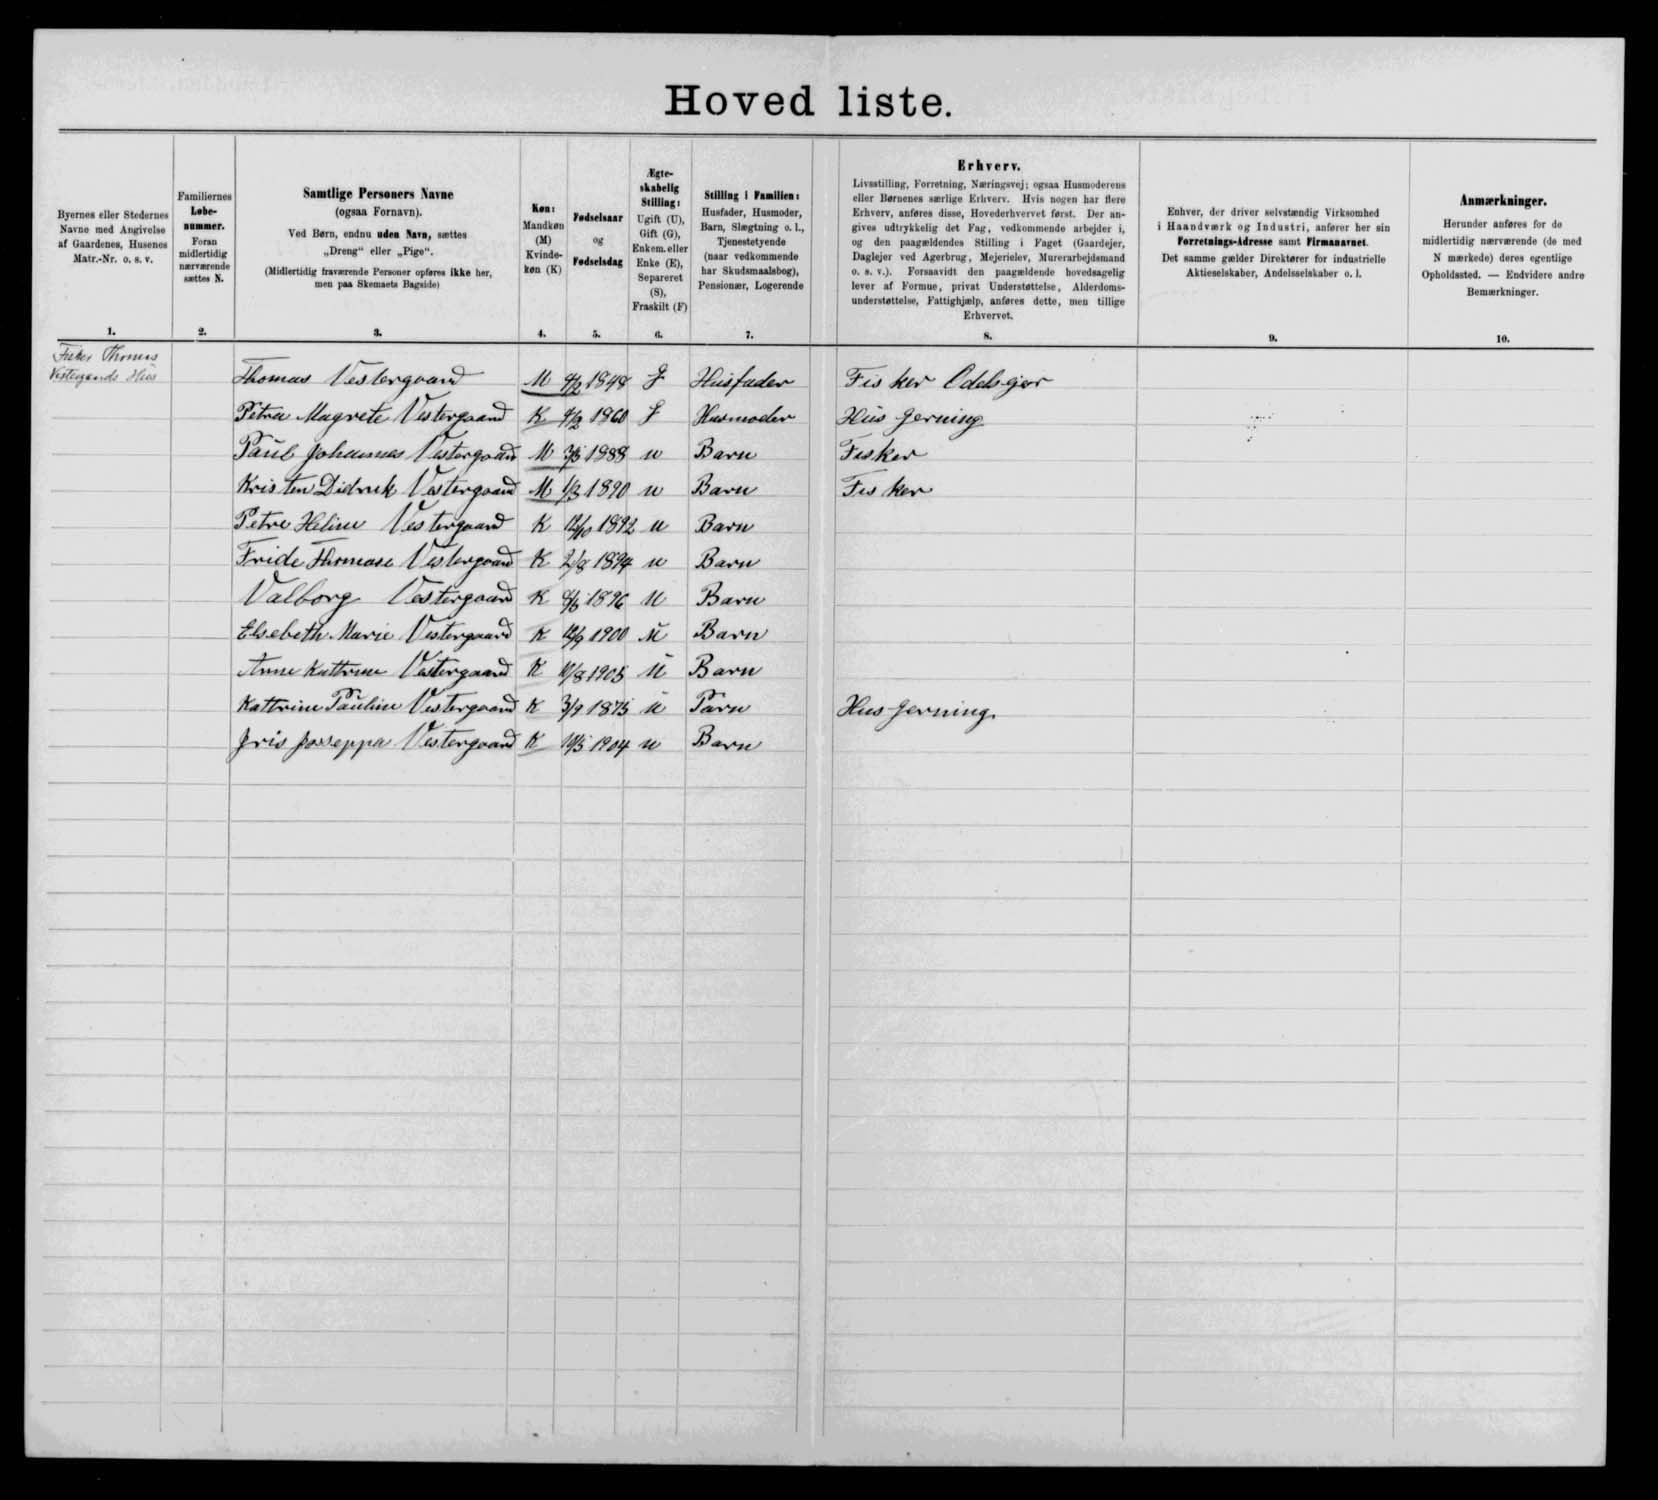 Hoved liste.
Byernes eller Stedernes
Navne med Angivelse
af Gaardenes, Husenes
Matr.-Nr. o. s. v.
1.
Familiernes
Løbe-
nummer.
Foran
midlertidig
nærværende
sættes N.
2.
Samtlige Personers Navne
(ogsaa Fornavn).
Ved Børn, endnu uden Navn, sættes
„Dreng“ eller „Pige“.
(Midlertidig fraværende Personer opføres ikke her,
men paa Skemaets Bagside)
3.
Køn:
Mandkøn
(M)
Kvinde-
køn (K)
4.
Fødselsaar
og
Fødselsdag
5.
Ægte-
skabelig
Stilling:
Ugift (U),
Gift (G),
Enkem. eller
Enke (E),
Separeret
(S),
Fraskilt (F)
6.
Stilling i Familien:
Husfader, Husmoder,
Barn, Slægtning o. l.,
Tjenestetyende
(naar vedkommende
har Skudsmaalsbog),
Pensionær, Logerende
7.
Erhverv.
Livsstilling, Forretning, Næringsvej; ogsaa Husmoderens
eller Børnenes særlige Erhverv. Hvis nogen har flere
Erhverv, anføres disse, Hovederhvervet først. Der an-
gives udtrykkelig det Fag, vedkommende arbejder i,
og den paagældendes Stilling i Faget (Gaardejer,
Daglejer ved Agerbrug, Mejerielev, Murerarbejdsmand
o. s. v.). Forsaavidt den paagældende hovedsagelig
lever af Formue, privat Understøttelse, Alderdoms-
understøttelse, Fattighjælp, anføres dette, men tillige
Erhvervet.
8.
Enhver, der driver selvstændig Virksomhed
i Haandværk og Industri, anfører her sin
Forretnings-Adresse samt Firmanavnet.
Det samme gælder Direktører for industrielle
Aktieselskaber, Andelsselskaber o. l.
9.
Anmærkninger.
Herunder anføres for de
midlertidig nærværende (de med
N mærkede) deres egentlige
Opholdssted. — Endvidere andre
Bemærkninger.
10.
Fisker Thomas
Vestergaards Hús
Thomas Vestergaard M 1848 G Húsfader Fisker Odelsejer
Petra Magrete Vestergaard K 1860 G Husmoder Hús Gerning
Paúl Johannes Vestergaard M 3/5 1888 u Barn Fisker
Kristen Didrik Vestergaard M 1/3 1890 u Barn Fisker
Petre Heline Vestergaard K 12/10 1892 u Barn
Fride Thomase Vestergaard K 2/8 1894 u Barn
Valborg Vestergaard K 8/6 1896 U Barn
Elsebeth Marie Vestergaard K 12/9 1900 U Barn
Anne Kattrine Vestergaard K 11/8 1905 U Barn
Kattrine Paúline Vestergaard K 3/9 1875 u Parn Hus Gerning.
Jris Josseppa Vestergaard K 10/5 1904 u Barn